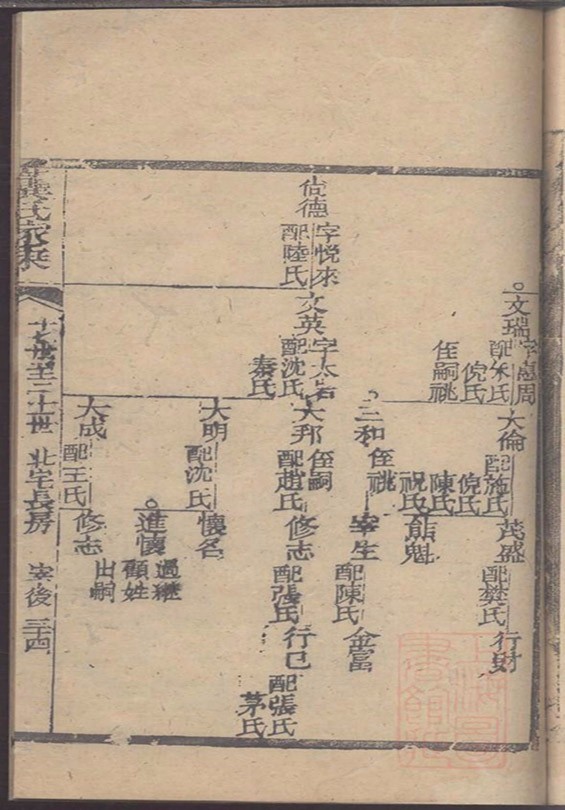 文瑞
字惠周
配朱氏
倪氏
侄嗣祧
大倫
配施氏
倪氏
陳氏
祝氏
茂盛
配樊氏
行財
喆魁
三和
侄祧
宰生
配陳氏
金富
佔德
字悅來
配陸氏
文英
配沈氏
秦氏
大邦
侄嗣
配趙氏
修志
配張氏
行巳
配張氏
茅氏
大明
配沈氏
懷名
進懷
過繼
顧姓
出嗣
大成
配王氏
修志
氏家乘
世至二十世 北宅長房
後 三十四